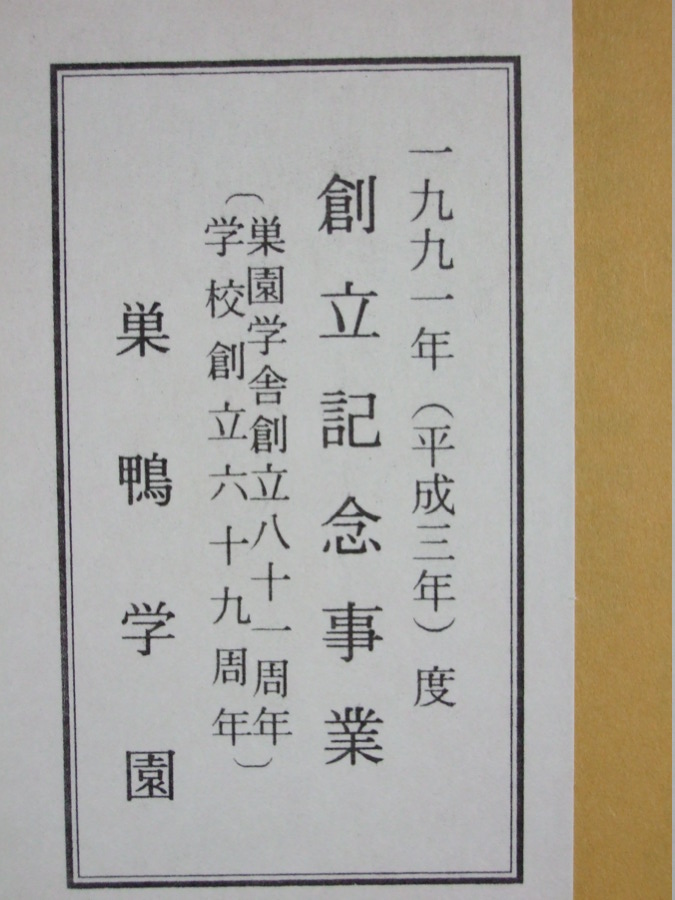 一九九一年（平成三年）度
創立記念事業
（巣園学舎創立八十一周年
学校創立六十九周年）
巣鴨学園